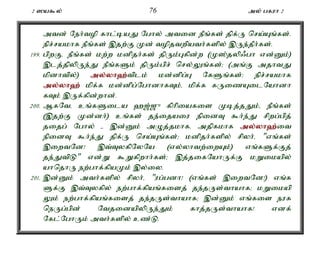 2 ஸயகூல் 76 அல் பகரா 2
அவன் நேர்வழி காட்டியது போல் அவனை நீங்கள் திக்ரு செய்யுங்கள்.
நிச்சயமாக நீங்கள் இதற்கு முன் வழிதவறியவர்களில் இருந்தீர்கள்.
199. பிறகு, நீங்கள் மற்ற மனிதர்கள் திரும்புகின்ற (முஸ்தலிஃபா என்னும்)
இடத்திலிருந்து நீங்களும் திரும்பிச் செல்லுங்கள்; (அங்கு அதாவது
மினாவில்) அல்லாஹ்விடம் மன்னிப்பு கேளுங்கள்; நிச்சயமாக
அல்லாஹ் மிக்க மன்னிப்போனாகவும், மிக்க கருணையுடையோனா
கவும் இருக்கின்றான்.
200. ஆகவே, உங்களுடைய ஹஜ்ஜு கிரியைகளை முடித்ததும், நீங்கள்
(இதற்கு முன்னர்) உங்கள் தந்தையரை நினைவு கூர்ந்து சிறப்பித்
ததைப் போல் - இன்னும் அழுத்தமாக, அதிகமாக அல்லாஹ்வை
நினைவு கூர்ந்து திக்ரு செய்யுங்கள்; மனிதர்களில் சிலர், "எங்கள்
இறைவனே! இவ்வுலகிலேயே (எல்லாவற்றையும்) எங்களுக்குத்
தந்துவிடு" என்று கூறுகிறார்கள்; இத்தகையோருக்கு மறுமையில்
யாதொரு நற்பாக்கியமும் இல்லை.
201. இன்னும் அவர்களில் சிலர், "ரப்பனா! (எங்கள் இறைவனே!) எங்க
ளுக்கு இவ்வுலகில் நற்பாக்கியங்களைத் தந்தருள்வாயாக; மறுமையி
லும் நற்பாக்கியங்களைத் தந்தருள்வாயாக; இன்னும் எங்களை நரக
நெருப்பின் வேதனையிலிருந்தும் காத்தருள்வாயாக! எனக்
கேட்போரும் அவர்களில் உண்டு.